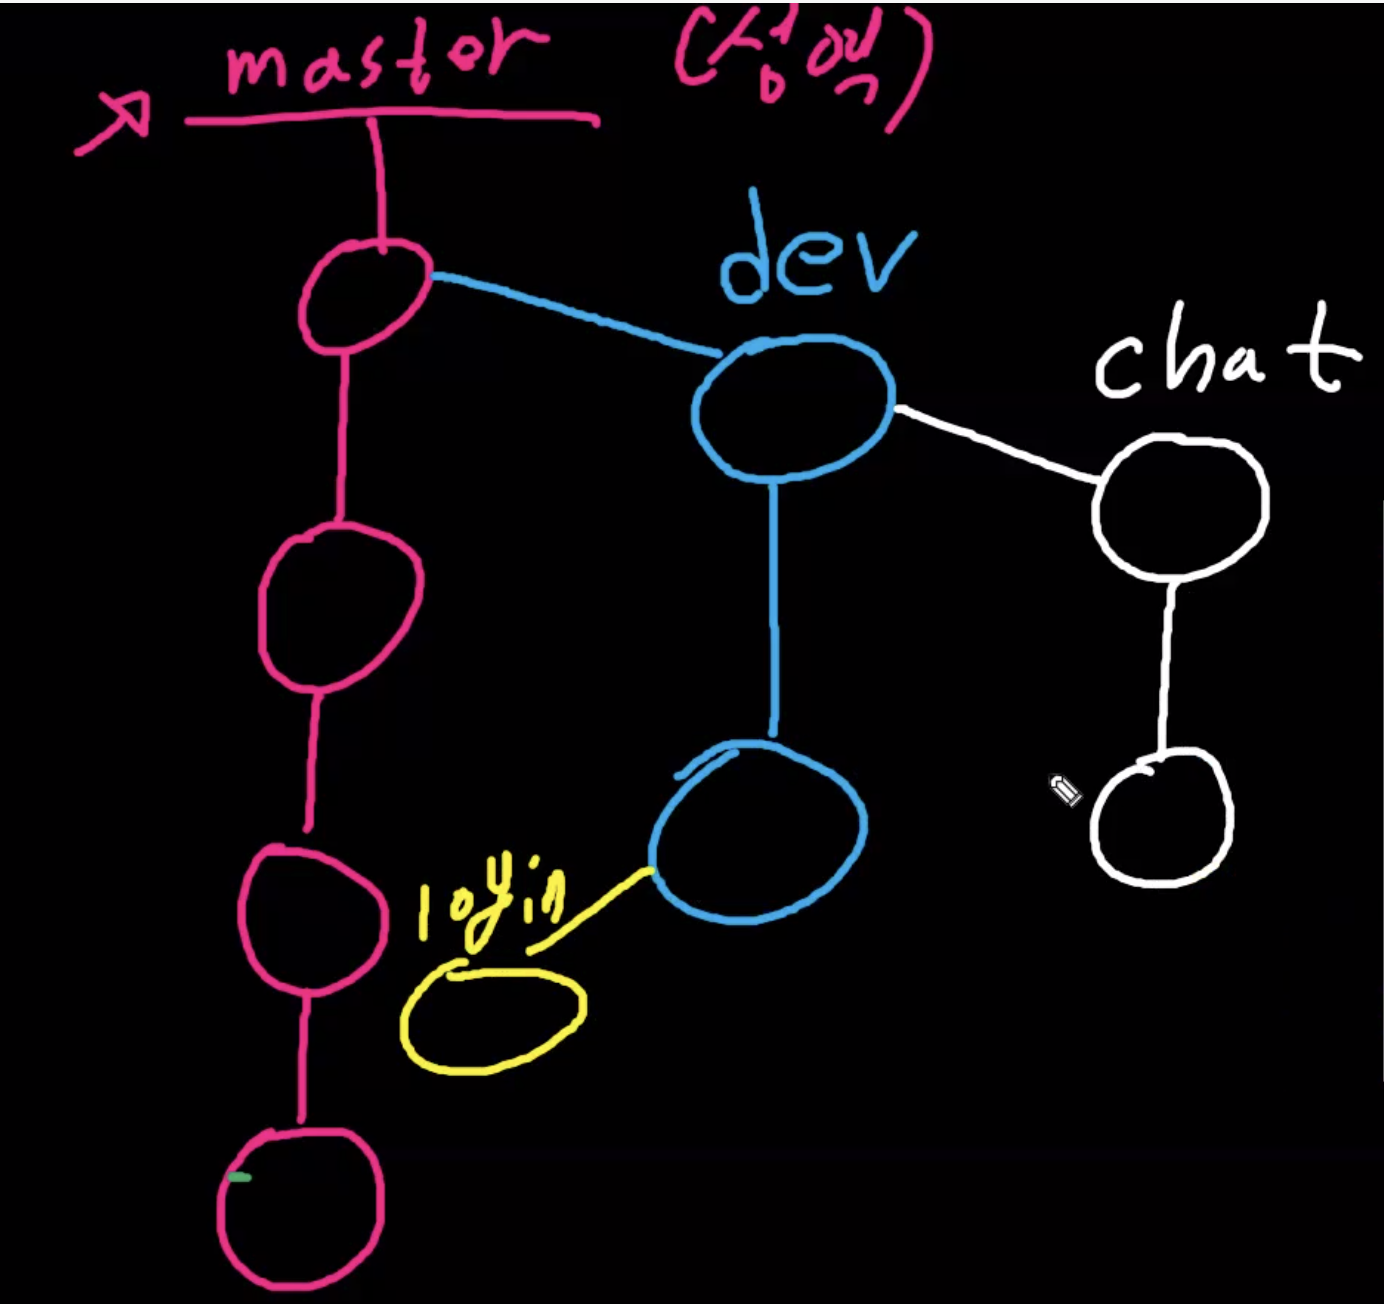 master
dev
chat
login